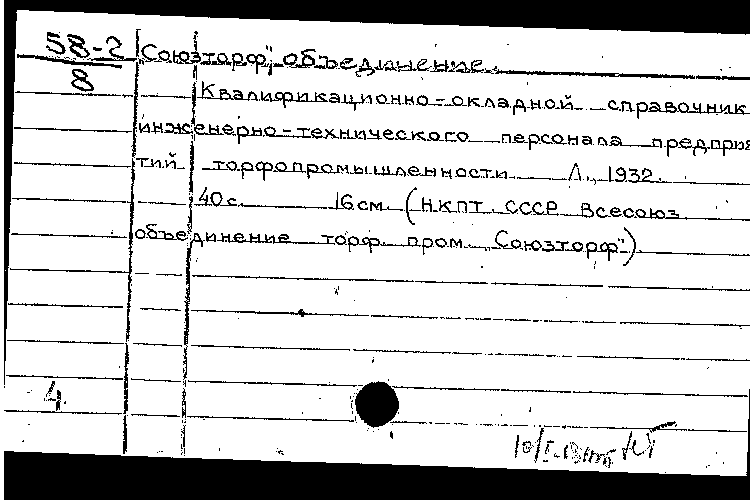 58-2
8
„Союзторф", объединение.
Квалификационно-окладной справочник
инженерно-технического персонала предприя
тий торфопромышленности Л., 1932.
40с. 16см. (НКПТ СССР. Всесоюз.
объединение торф. пром. „Союзторф")
4